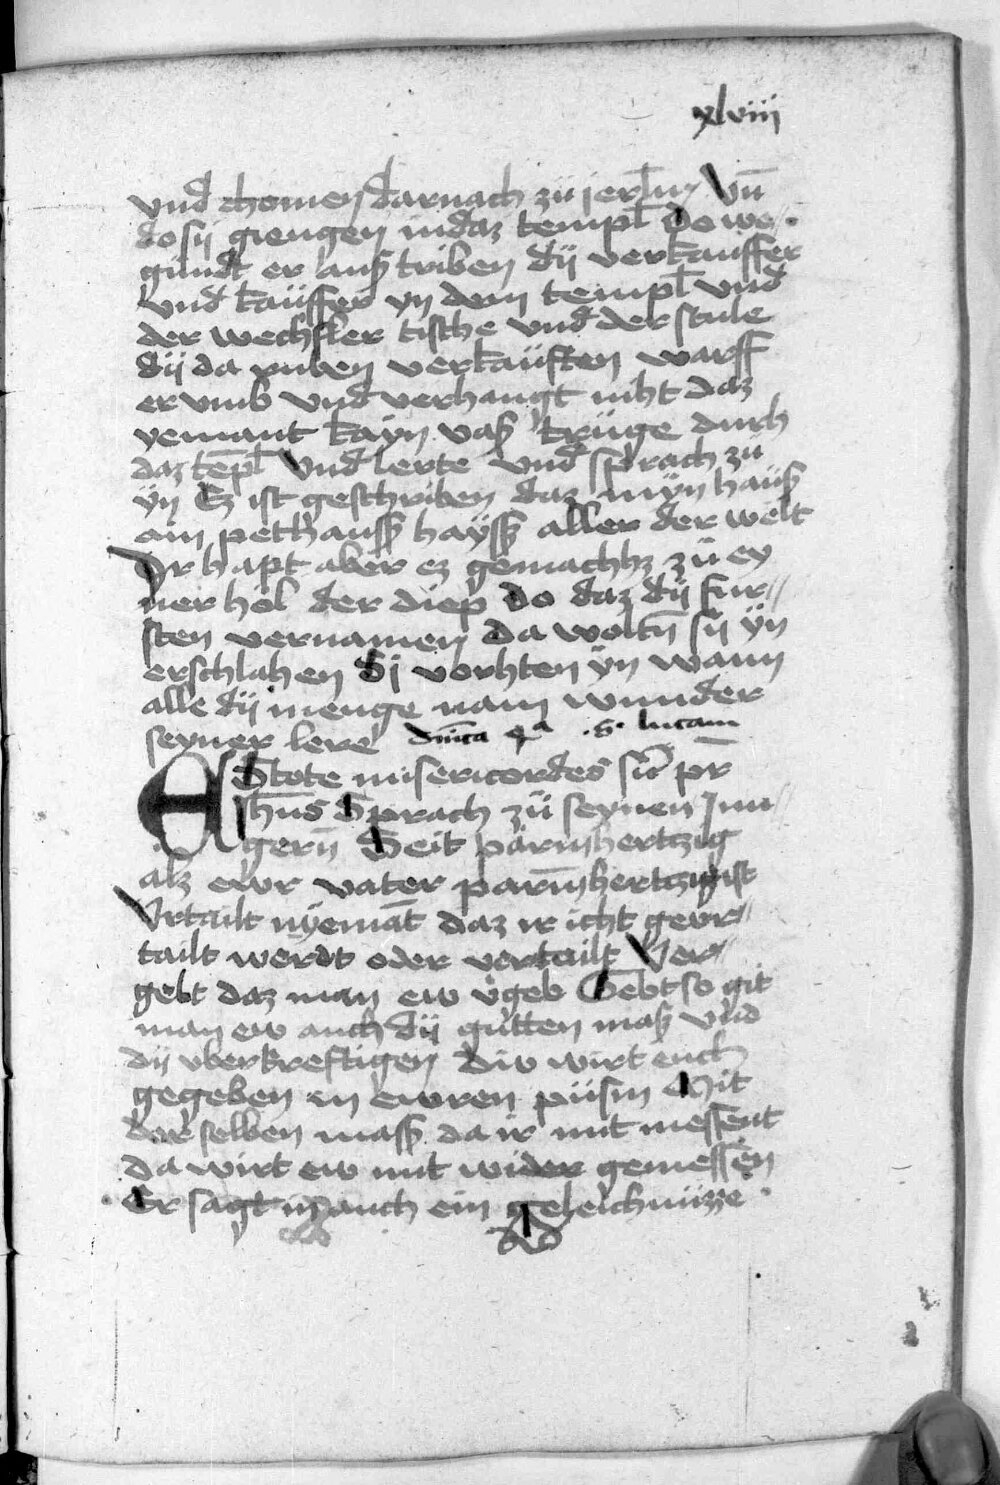 xlviii
vnd chomen darnach zü jerlm̄ Vn̄
do sij giengen in daz templ̄ Do we
gundt er auß triben dij verkauffer
vnd kaüffer yn dem templ̄ vnd
der wechsler tische vnd der stule
dij da tuben verkaüften warff
er vmb vnd verhangt niht daz
yemant kayn vaß trüge durh
daz tēpl̄ Vnd lerte vnd sprach zü
ÿn Ez ist geschriben daz mÿn haüß
ain pethauß hayß aller der welt
Ir hapt aber ez gemachtz zü ey
ner hol der diep do daz dij fur//
sten vernamen da woltn̄ sij ÿn
erschlahen Sj vorhten ÿn wann
alle dij menge nam wunder
seyner lere Dn̄ica 4a .S. lucam
EStote misericordes sic̄ pr̄
Jhūs Sprach zü seynen Jun//
gern̄ Seit parmhertzig
alz ewr vater parm̄hertzig ist
Vrtailt nÿemāt daz ir icht geur//
tailt werdt oder vertailt Ver//
gebt daz man ew v̓geb Gebt so git
man ew auch dij gutten maß vnd
dij vberkreftigen div wirt euch
gegeben in ewren püsm Mit
der selben maß da ir mit messent
da wirt ew mit wider gemessen
Er sagt in auch ein geleichnüzze